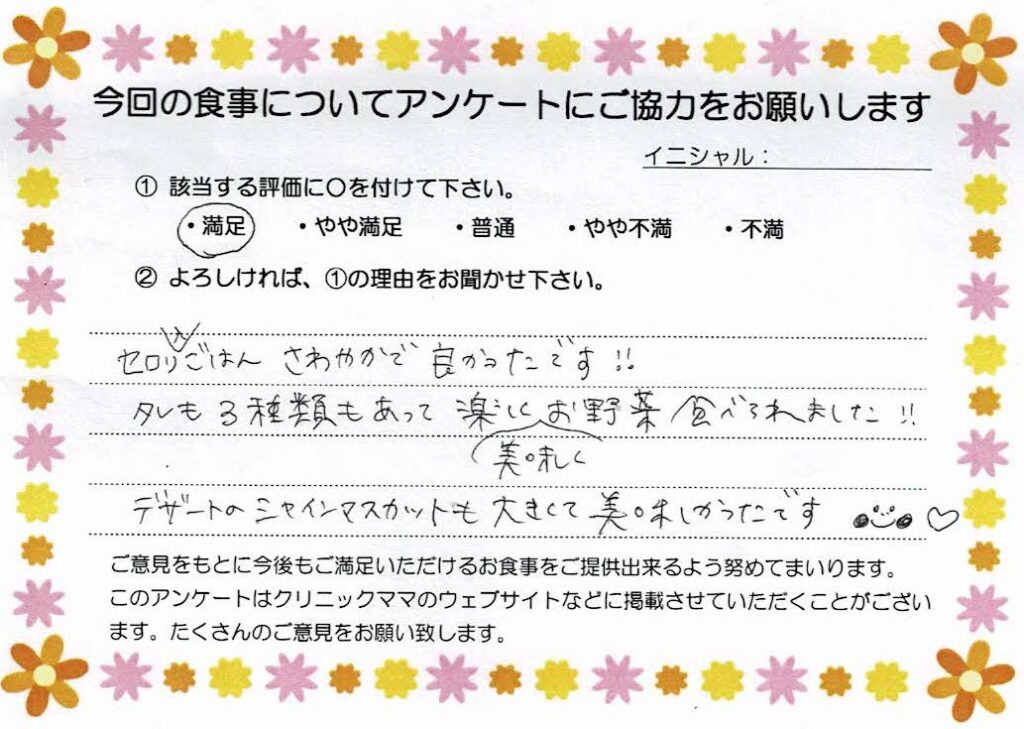 今回の食事についてアンケートにご協力をお願いします
イニシャル：
① 該当する評価に〇を付けて下さい。
・満足 ・やや満足 ・普通 ・やや不満 ・不満
② よろしければ、①の理由をお聞かせ下さい。
入
セロリごはん さわやかで 良かったです!!
タレも 3種類もあって 楽しく お野菜 食べられました!!
美味しく
デザートの シャインマスカットも 大きくて 美味しかったです
ご意見をもとに今後もご満足いただけるお食事をご提供出来るよう努めてまいります。
このアンケートはクリニックママのウェブサイトなどに掲載させていただくことがござい
ます。たくさんのご意見をお願い致します。